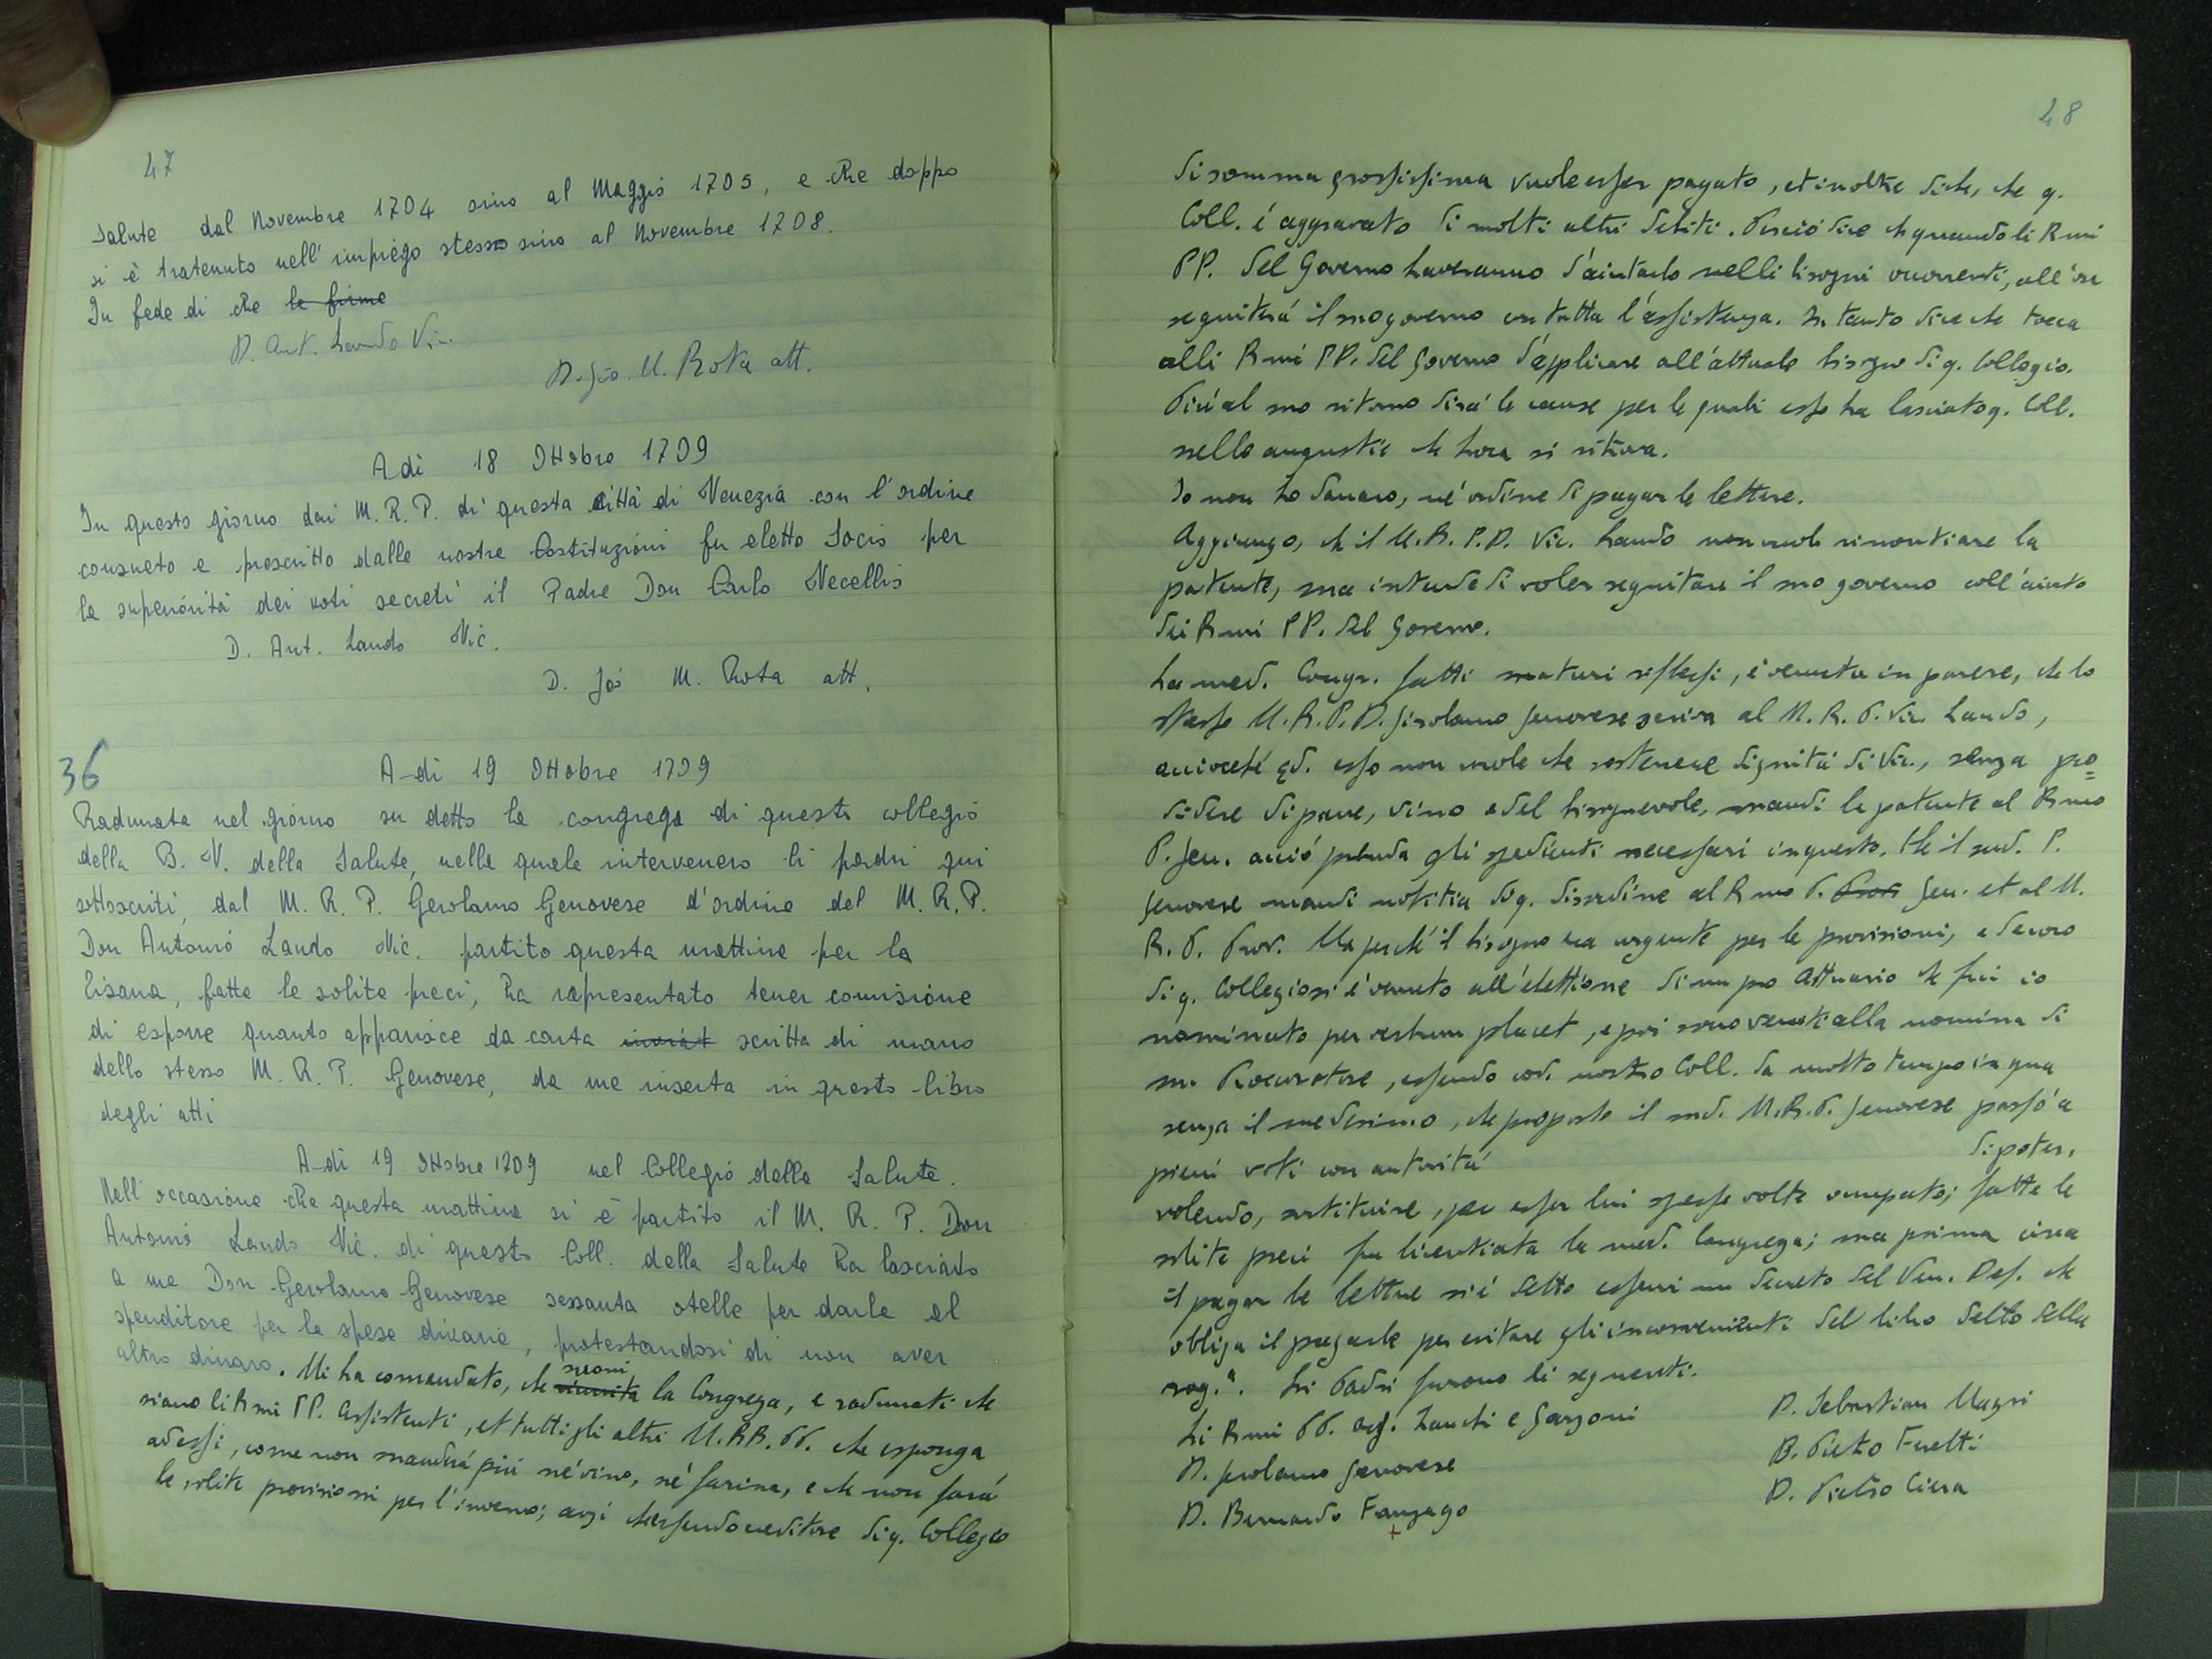 47
salute dal Novembre 1704 sino al Maggio 1705, e che doppo
si è tratenuto nell' impiego stesso sino al Novembre 1708.
In fede di che le firme
D. Ant. Lando Vic.
D. Gio. M. Rota att.
Adi 18 Ottobre 1709
In questo giorno dai M. R. P. di questa città di Venezia con l'ordine
consueto e prescritto dalle nostre Costituzioni fu eletto Socio per
la superiorità dei voti secreti il Padre Don Carlo Vecellis
D. Ant. Lando Vic.
D. Gio M. Rota att.
36
A-di 19 Ottobre 1709
Radunata nel giorno su detto la congrega di questo collegio
della B. V. della Salute, nella quale intervenero li padri qui
sottoscriti, dal M. R. P. Gerolamo Genovese d'ordine del M. R. P.
Don Antonio Lando Vic. partito questa mattina per la
Pisana, fatte le solite preci, ha rapresentato tener comisione
di esporre quanto apparisce da carta scritta di mano
dello stesso M. R. P. Genovese, da me inserta in questo libro
degli atti
A-di 19 Ottobre 1709 nel Collegio della Salute.
Nell'occasione che questa mattina si è partito il M. R. P. Don
Antonio Lando Vic. di questo Coll. della Salute ha lasciato
a me Don Gerolamo Genovese sessanta stelle per darle al
spenditore per le spese divarie, protestandosi di non aver
altro dinaro. Mi ha comandato, che suoni riunita la Congrega, e radunati che
siano li R.mi PP. Assistenti, et tutti gli altri M.RR.PP. che esponga
ad essi, come non manderà più né vino, né farina, e che non farà
le solite provisioni per l'inverno; anzi ch'essendo creditore di q. Collegio
48
di somma grossissima vuole esser pagato, et inoltre dich, che q.
Coll. é aggravato di molti altri debiti. Perciò dice che quando li R.mi
PP. del Governo haveranno d'aiutarlo nelli bisogni occorrenti, all'ora
seguiterá il suo governo con tutta l'assistenza. In tanto dice che tocca
alli R.mi PP. del Governo d'applicare all'attuale bisogno di q. Collegio.
Più al suo ritorno dirà le cause per le quali esso ha lasciato q. Coll.
nelle angustie che hora si ritrova.
Io non ho danaro, né ordine di pagar le lettere.
Aggiungo, che il M.R.P.D. Vic. Lando non vuole rinontiare la
patente, ma intende di voler seguitare il suo governo coll'aiuto
dei R.mi PP. del Governo.
La med. Congr. fatti maturi riflessi, è venuta in parere, che lo
stesso M.R.P.D. Girolamo Genovese scriva al M.R.P. Vic. Lando,
acciocché qd. esso non vuole che sostenere dignità di Vic., senza pro=
videre di pane, vino e del bisognevole, mandi la patente al R.mo
P. Gen. acciò prenda gli spedienti necessari in questo. Che il sud. P.
Genovese mandi notitia di q. disordine al R.mo P. Prov. Gen. et al M.
R. P. Prov. Ma perché il bisogno era urgente per le provisioni, e decoro
di q. Collegio si è venuto all'elettione di un pro Attuario che fui io
nominato per verbum placet, e poi sono venuti alla nomina di
un Procuratore, essendo cod. nostro Coll. da molto tempo in qua
senza il medesimo, che proposto il sud. M.R.P. Genovese passò a
pieni voti con autorità di poter,
volendo, sostituire, per esser lui spesse volte occupato; fatte le
solite preci fu licentiata la med. Congrega; ma prima circa
il pagar le lettere si è detto esservi un decreto del Ven. Def. che
obliga il pagarle per evitare gli inconvenienti del libro detto della
rag.a. Li Padri furono li seguenti.
Li R.mi PP. Ass. Zanchi e Garzoni
D. Gerolamo Genovese
D. Bernardo Fanzago
D. Sebastian Magri
D. Pietro Furlti
D. Pietro Ciera